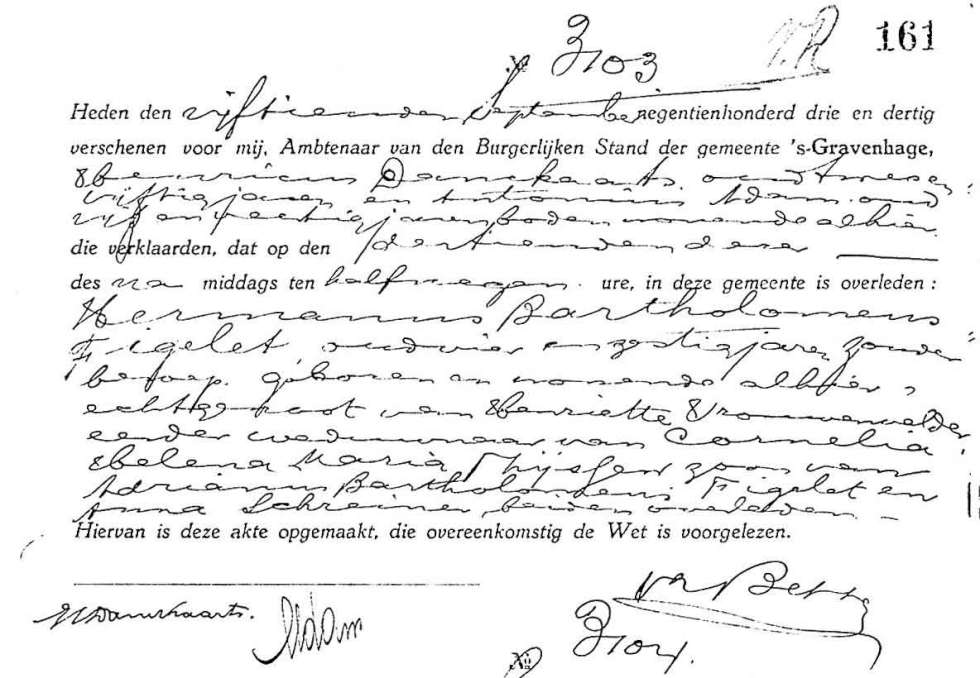 161
№ 3103
Heden den vijftienden September negentienhonderd drie en dertig
verschenen voor mij, Ambtenaar van den Burgerlijken Stand der gemeente 's-Gravenhage,
Henricus Danckaarts, oud twee en
vijftig jaren en Antonius Adam, oud
vijf en veertig jaren, boden wonende alhier,
die verklaarden, dat op den dertienden dezer
des na middags ten half negen ure, in deze gemeente is overleden :
Hermanus Bartholomeus
Figelet, oud vier en zestig jaren, zonder
beroep, geboren en wonende alhier,
echtgenoot van Henriette Vrouwenvelder,
eerder weduwnaar van Cornelia
Helena Maria Thijssen, zoon van
Adrianus Bartholomeus Figelet en
Anna Schreiner, beiden overleden.
Hiervan is deze akte opgemaakt, die overeenkomstig de Wet is voorgelezen.
HDanckaarts. Adam
№ 3104.